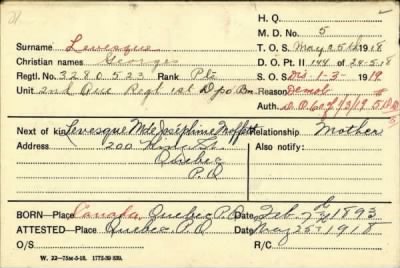 H. Q.
M. D. No. 5
Surname Levesque T. O. S. May 25th 1918
Christian names Georges D. O. Pt. II 144 of 24-5-18
Regtl. No. 3280523 Rank Pte S. O. S. Dis. 1-3-1919
Unit 2nd Que Regt 1st Dpo Bn Reason Demob
Auth. D.O. 60
Next of kin Levesque Mde Joséphine Moffett Relationship Mother
Address 200 St. Also notify:
Quebec
P.Q
BORN—Place Canada, Quebec P.Q. Date Feb. 7th 1893
ATTESTED—Place Quebec P.Q Date May 25th 1918
O/S R/C.
W. 22—75M-5-18. 1772-39 839.